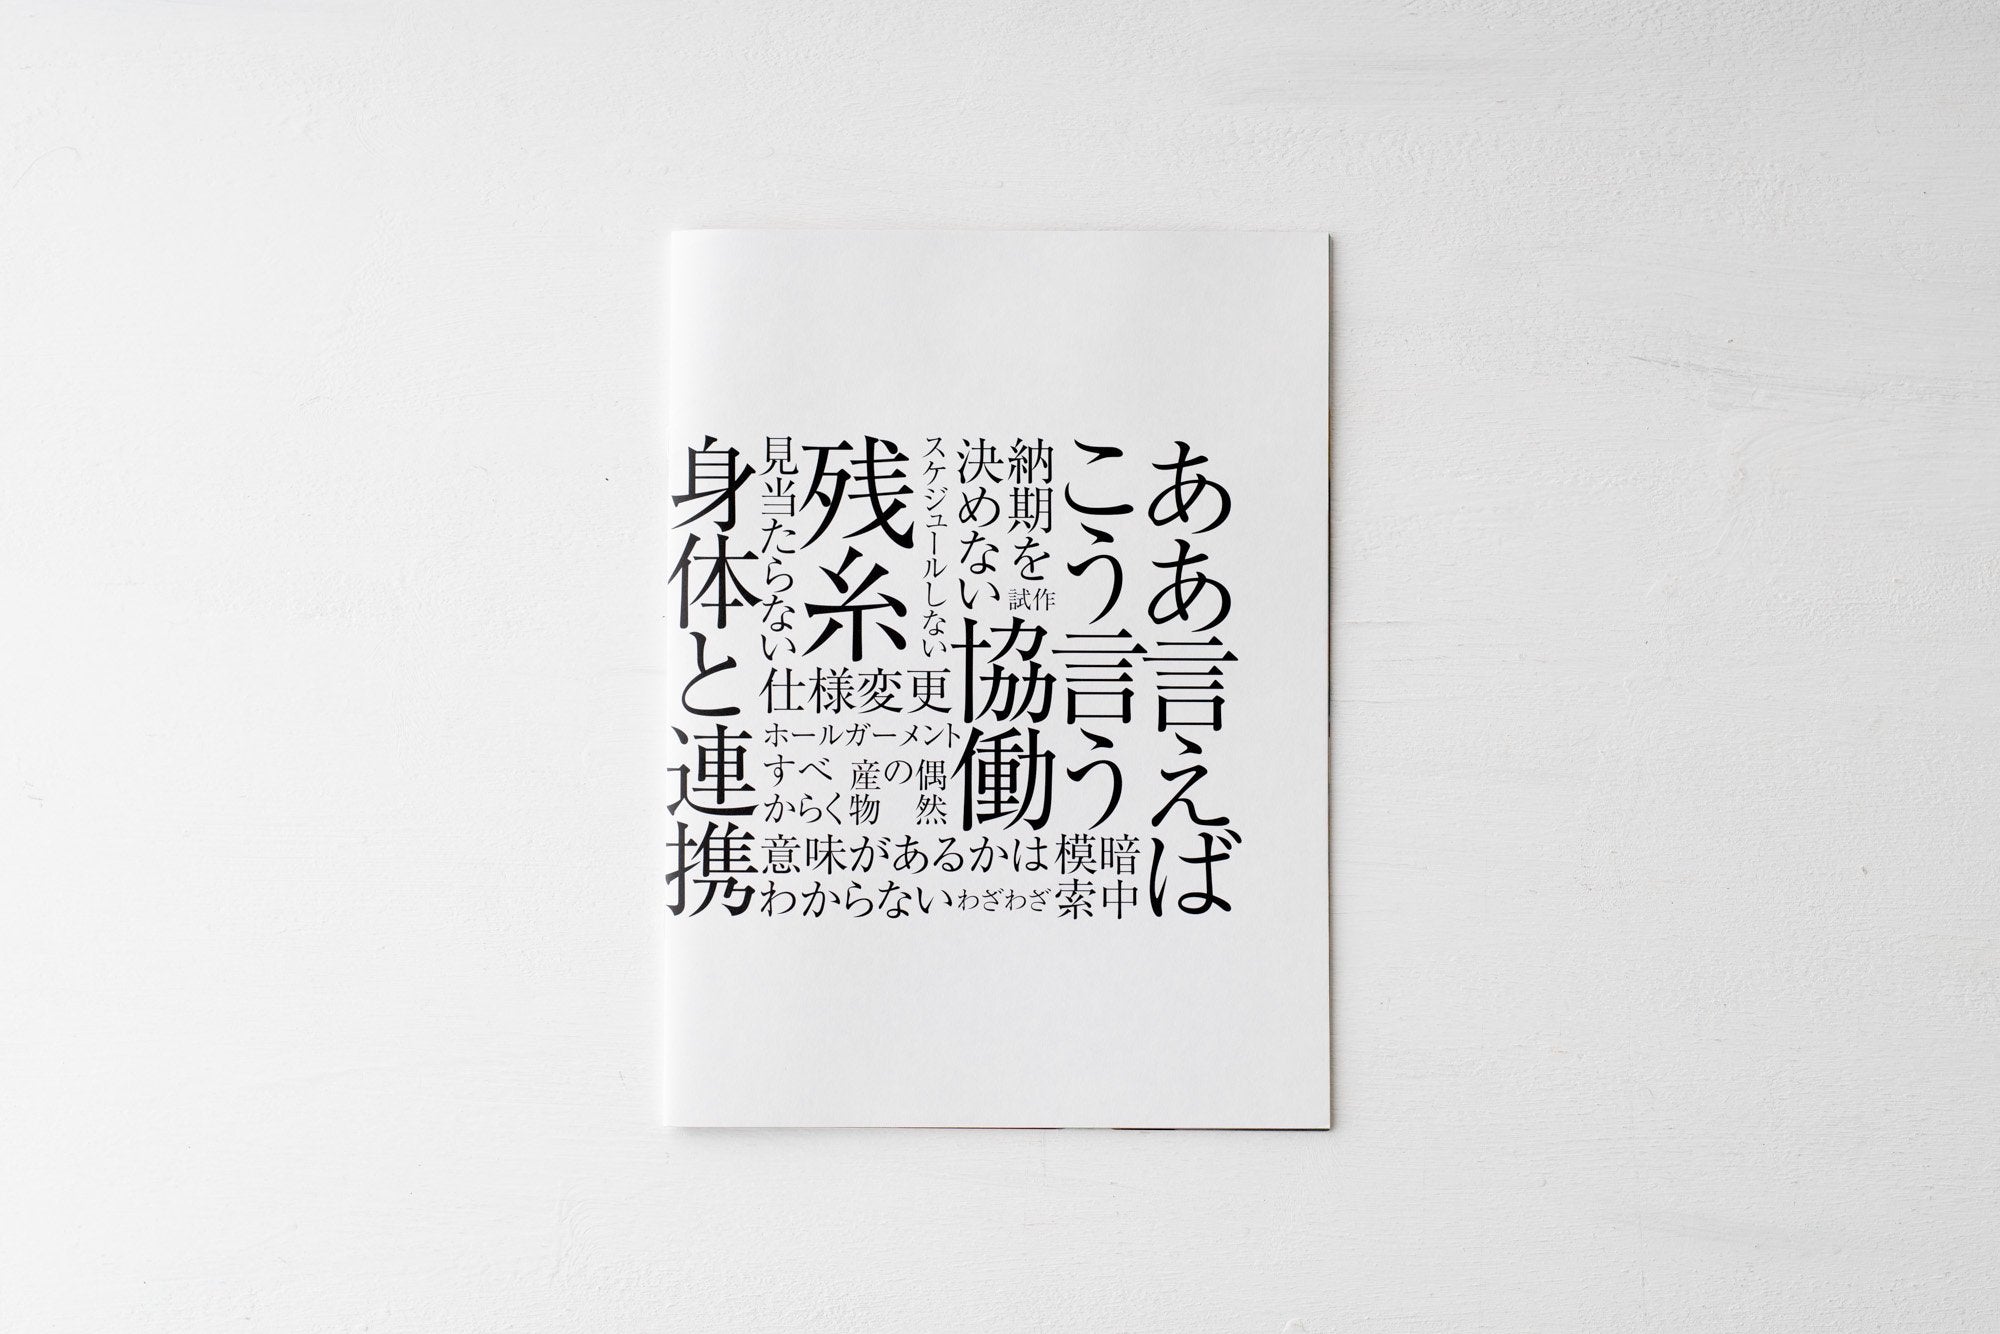 ああ言えば
こう言う
納期を
決めない
試作
協働
スケジュールしない
残糸
見当たらない
仕様変更
ホールガーメント
偶然
の
産物
すべ
からく
暗中
模索
意味があるかは
わからない
わざわざ
身体と連携